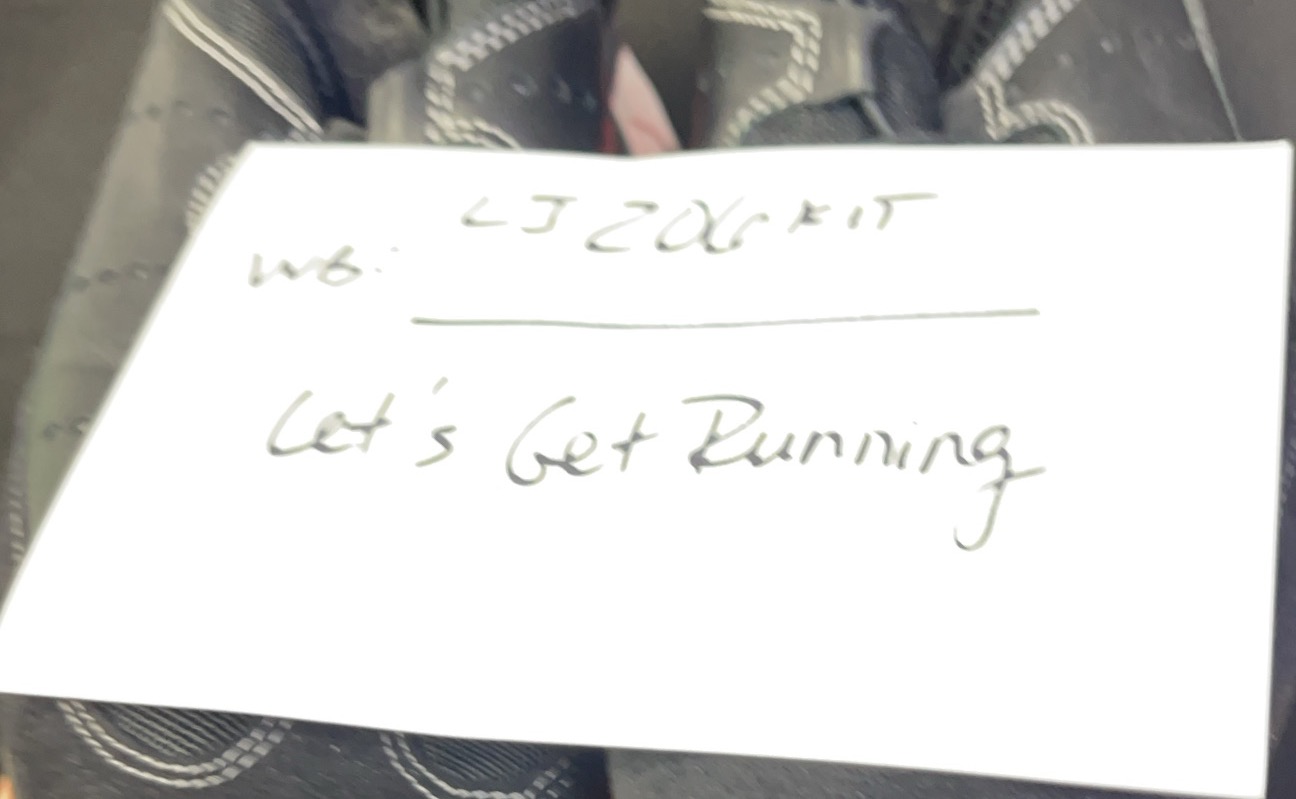 LJ206KIT
WG:
Let's Get Running